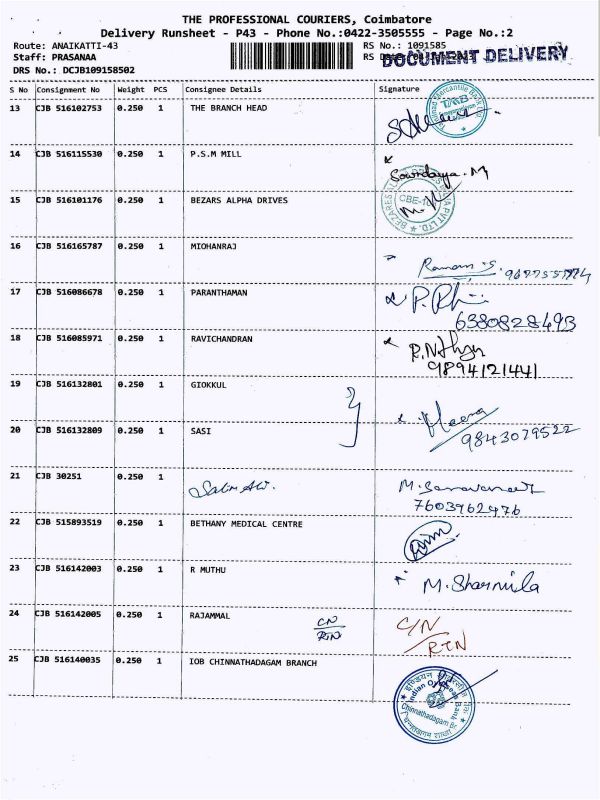 THE PROFESSIONAL COURIERS, Coimbatore
Delivery Runsheet - P43 - Phone No.:0422-3505555 - Page No.:2
Route: ANAIKATTI-43 RS No.: 1091585
Staff: PRASANAA RS
DOCUMENT DELIVERY
DRS No.: DCJB109158502
S No Consignment No Weight PCS Consignee Details Signature
13 CJB 516102753 0.250 1 THE BRANCH HEAD
TMB
14 CJB 516115530 0.250 1 P.S.M MILL
Soundarya. M
15 CJB 516101176 0.250 1 BEZARS ALPHA DRIVES
16 CJB 516165787 0.250 1 MIOHANRAJ
Raman.S.
17 CJB 516086678 0.250 1 PARANTHAMAN
6380828493
18 CJB 516085971 0.250 1 RAVICHANDRAN
9894121441
19 CJB 516132801 0.250 1 GIOKKUL
Meena
20 CJB 516132809 0.250 1 SASI
9843079522
21 CJB 30251 0.250 1 Salim Ali. M. Saravanan
7603962476
22 CJB 515893519 0.250 1 BETHANY MEDICAL CENTRE
23 CJB 516142003 0.250 1 R MUTHU
M. Sharmila
24 CJB 516142005 0.250 1 RAJAMMAL CN C/N
RTN RTN
25 CJB 516140035 0.250 1 IOB CHINNATHADAGAM BRANCH
Indian Overseas Bank
Chinnathadagam Br